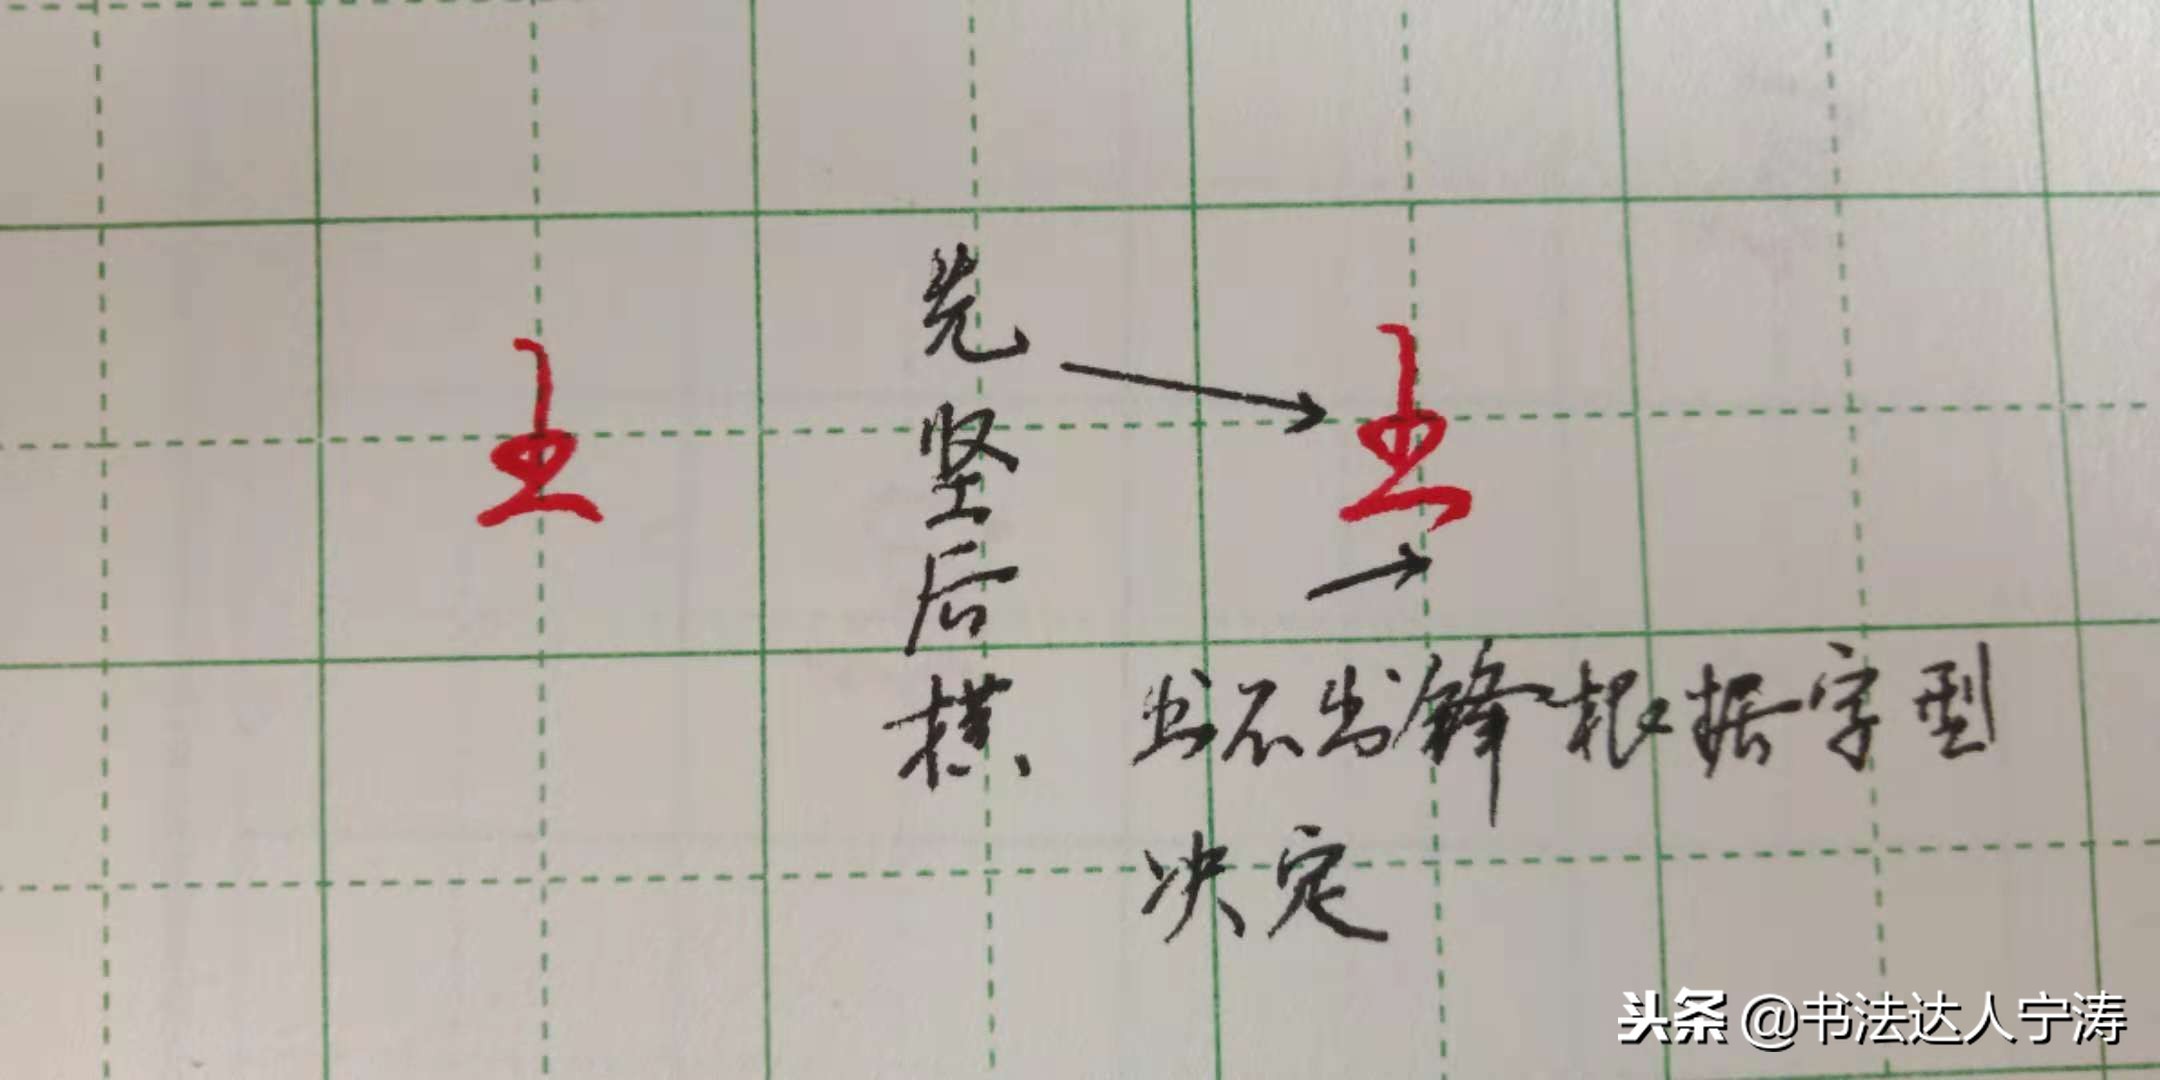 土
先
坚
后
横、
土
出不出锋根据字型
决定
头条 @书法达人宁涛